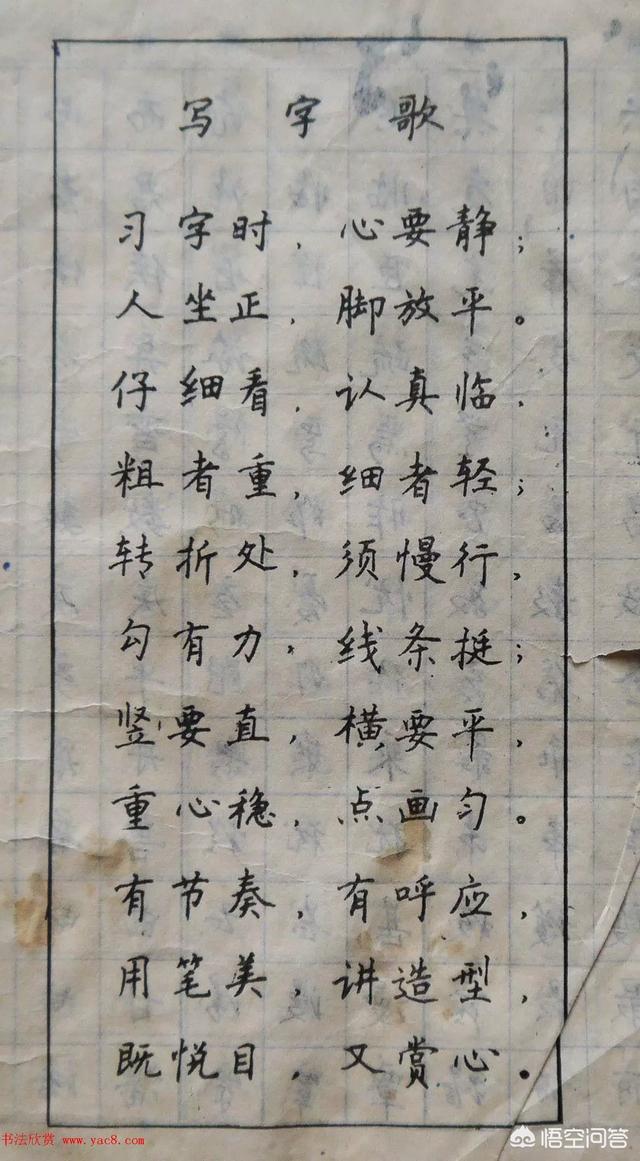 写字歌
习字时，心要静；
人坐正，脚放平。
仔细看，认真临，
粗者重，细者轻；
转折处，须慢行，
勾有力，线条挺；
竖要直，横要平，
重心稳，点画匀。
有节奏，有呼应，
用笔美，讲造型，
既悦目，又赏心。
书法欣赏 www.yac8.com
悟空问答